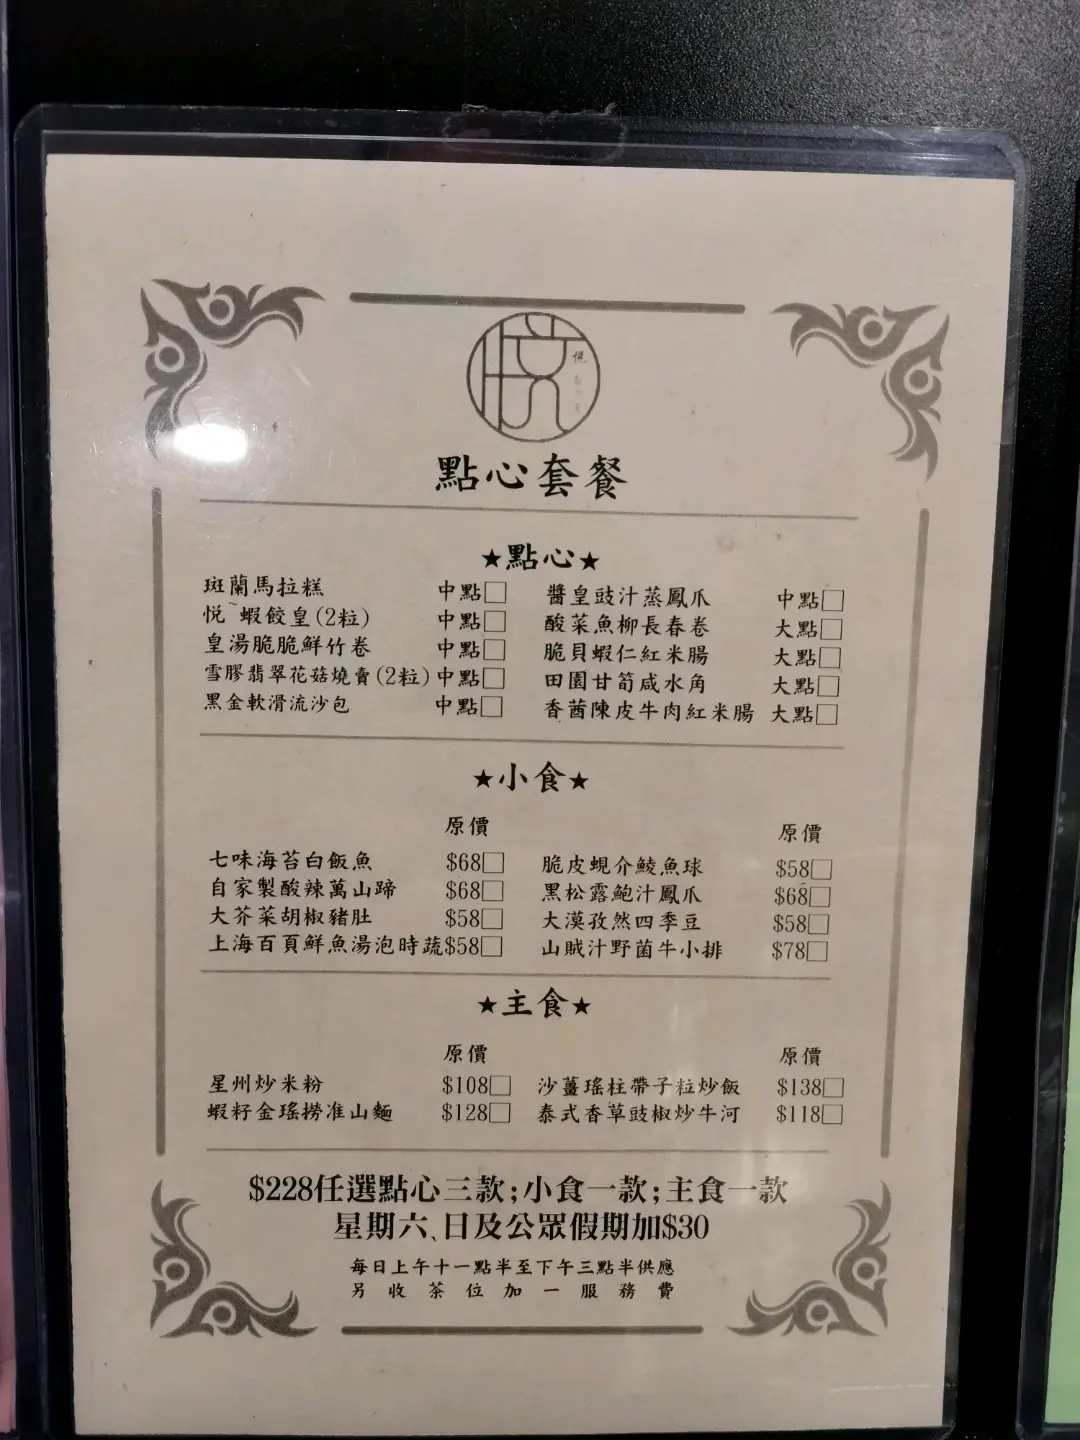 悅
點心套餐
★點心★
斑蘭馬拉糕 中點□ 醬皇豉汁蒸鳳爪 中點□
悅~蝦餃皇(2粒) 中點□ 酸菜魚柳長春卷 大點□
皇湯脆脆鮮竹卷 中點□ 脆貝蝦仁紅米腸 大點□
雪膠翡翠花菇燒賣(2粒) 中點□ 田園甘筍咸水角 大點□
黑金軟滑流沙包 中點□ 香茜陳皮牛肉紅米腸 大點□
★小食★
原價 原價
七味海苔白飯魚 $68□ 脆皮蜆介鯪魚球 $58□
自家製酸辣萬山蹄 $68□ 黑松露鮑汁鳳爪 $68□
大芥菜胡椒豬肚 $58□ 大漠孜然四季豆 $58□
上海百頁鮮魚湯泡時蔬 $58□ 山賊汁野菌牛小排 $78□
★主食★
原價 原價
星州炒米粉 $108□ 沙薑瑤柱帶子粒炒飯 $138□
蝦籽金瑤撈准山麵 $128□ 泰式香草豉椒炒牛河 $118□
$228任選點心三款;小食一款;主食一款
星期六、日及公眾假期加$30
每日上午十一點半至下午三點半供應
另收茶位加一服務費